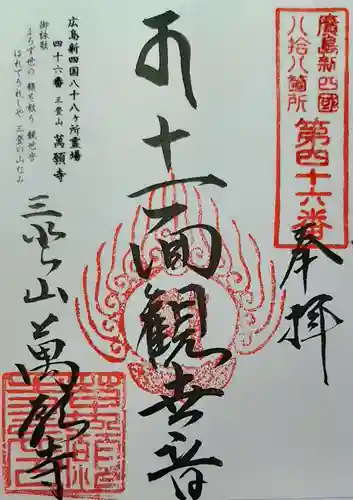 廣島新四國
八拾八箇所
第四十六番
奉拝
十一面観世音
三登山 萬願寺
広島新四国八十八ヶ所霊場
四十六番 三登山 萬願寺
御詠歌
よろず世の 願を救う 観世音
はれてうれしや 三登の山なみ